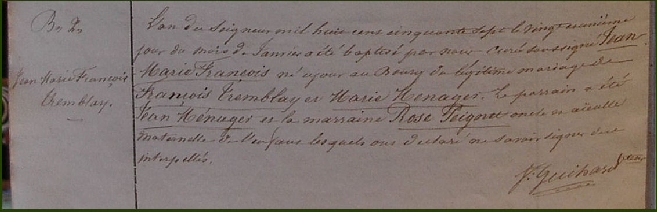 Jean Marie François
Tremblay.
L'an du Seigneur mil huit cent cinquante sept le vingt neuvième
jour du mois de Janvier a été baptisé par nous Curé soussigné Jean
Marie François né ce jour au Bourg du légitime mariage de
François Tremblay et Marie Menager. Le parrain a été
Jean Ménager et la marraine Rose Seignet oncle et aïeulle
maternelle de l'enfant lesquels ont déclaré ne savoir signer de ce
interpellés.
J. Guihard